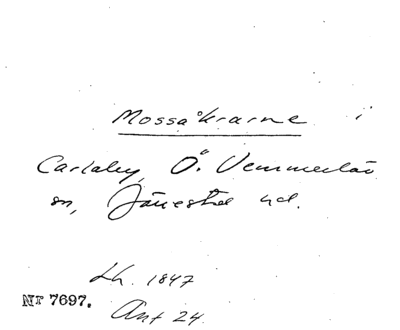 Mossåkrarne i
Carlaby, Ö. Vemmerlöv
sn, Järrestad hd.
Lh. 1847
Nr 7697.
Ant 24.